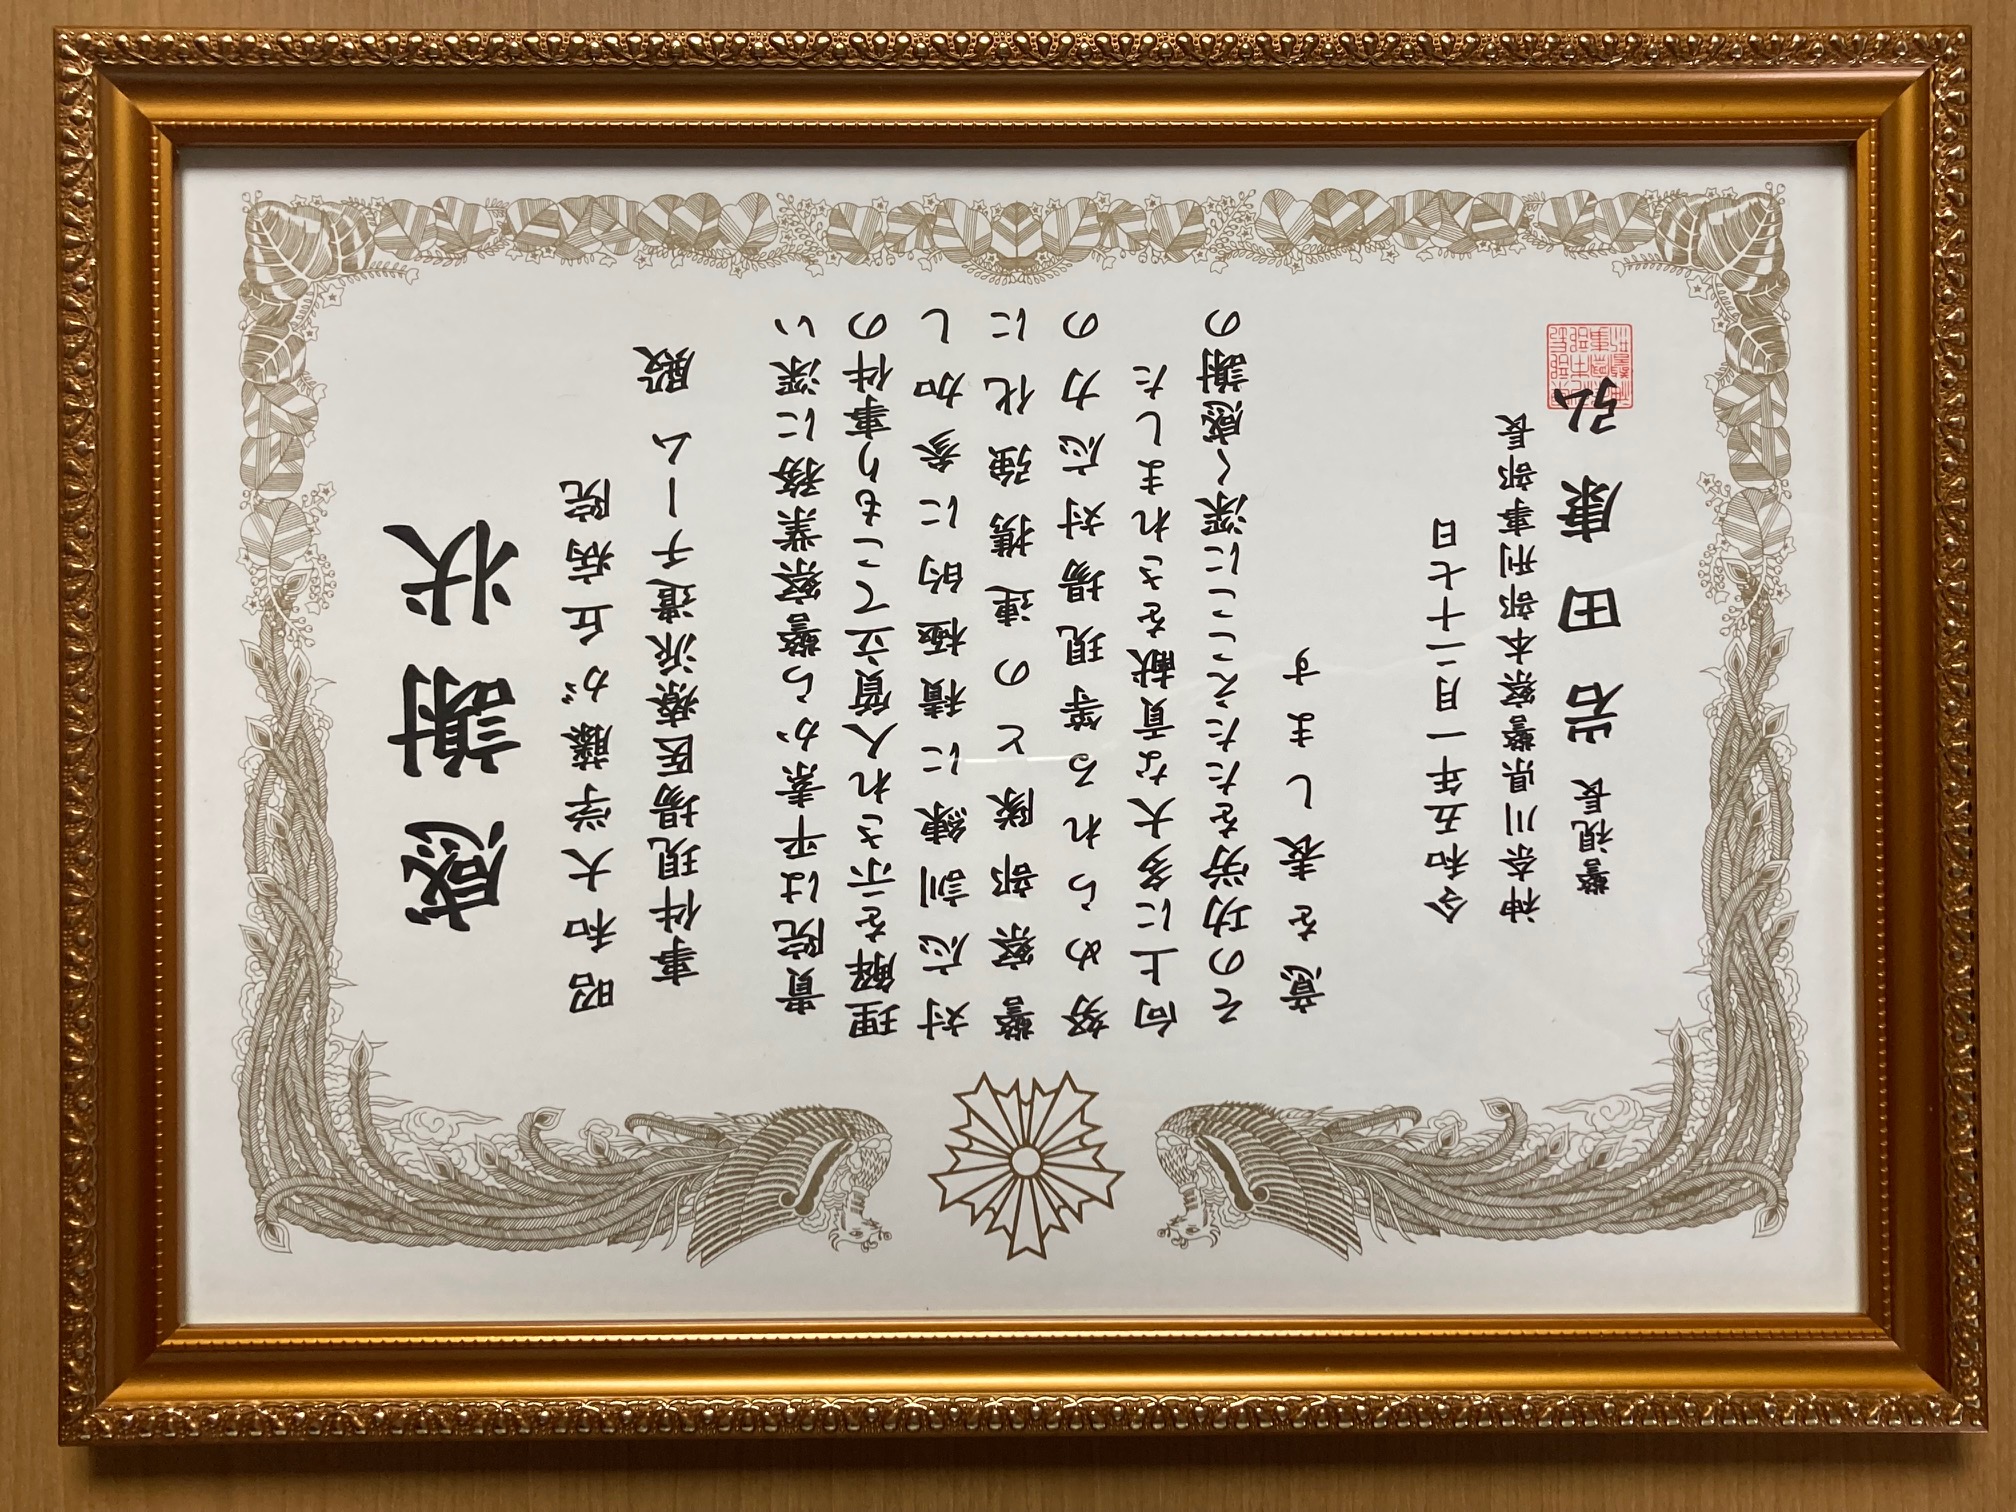 感謝状
昭和大学藤が丘病院
事件現場医療派遣チーム 殿
貴院は平素から警察業務に深い
理解を示され人質立てこもり事件の
対応訓練に積極的に参加し
警察部隊との連携強化に
努められる等現場対応力の
向上に多大な貢献をされました
その功労をたたえここに深く感謝の
意を表します
令和五年一月二十七日
神奈川県警察本部刑事部長
警視長 岩田康弘